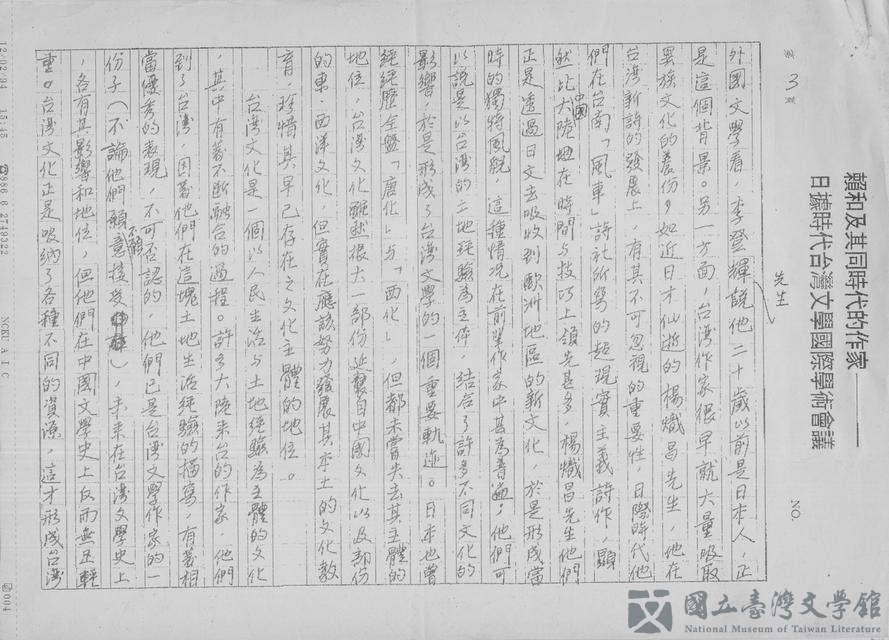 賴和及其同時代的作家——
日據時代台灣文學國際學術會議
NO.
第 3 頁
先生
外國文學看，李登輝說他二十歲以前是日本人，正
是這個背景。另一方面，台灣作家很早就大量吸取
異族文化的養份，如近日才仙逝的楊熾昌先生，他在
台灣新詩的發展上，有其不可忽視的重要性，日據時代他
們在台南「風車」詩社所寫的超現實主義詩作，顯
然比中國大陸地在時間與技巧上領先甚多，楊熾昌先生他們
正是透過日文去吸收到歐洲地區的新文化，於是形成當
時的獨特風貌，這種情況在前輩作家中甚為普遍，他們可
以說是以台灣的土地經驗為主体，結合了許多不同文化的
影響，於是形成了台灣文學的一個重要軌迹。日本也曾
經經歷全盤「唐化」与「西化」，但都未嘗失去其主體的
地位，台灣文化雖然很大一部份延襲自中國文化以及部份
的東、西洋文化，但實在應該努力發展其本土的文化教
育，珍惜其早已存在之文化主體的地位。
台灣文化是一個以人民生活与土地經驗為主體的文化
，其中有著不斷融合的過程。許多大陸來台的作家，他們
到了台灣，因著他們在這塊土地生活經驗的描寫，有著相
當優秀的表現，不可否認的，他們已是台灣文學作家的一
份子（不論他們願意不願意接受），未來在台灣文學史上
，各有其影響和地位，但他們在中國文學史上反而無足輕
重。台灣文化正是吸納了各種不同的資源，這才形成台灣
12/02/94 15:45 ☎886 6 2749322 NCKU A I C 004
國立臺灣文學館
National Museum of Taiwan Literature